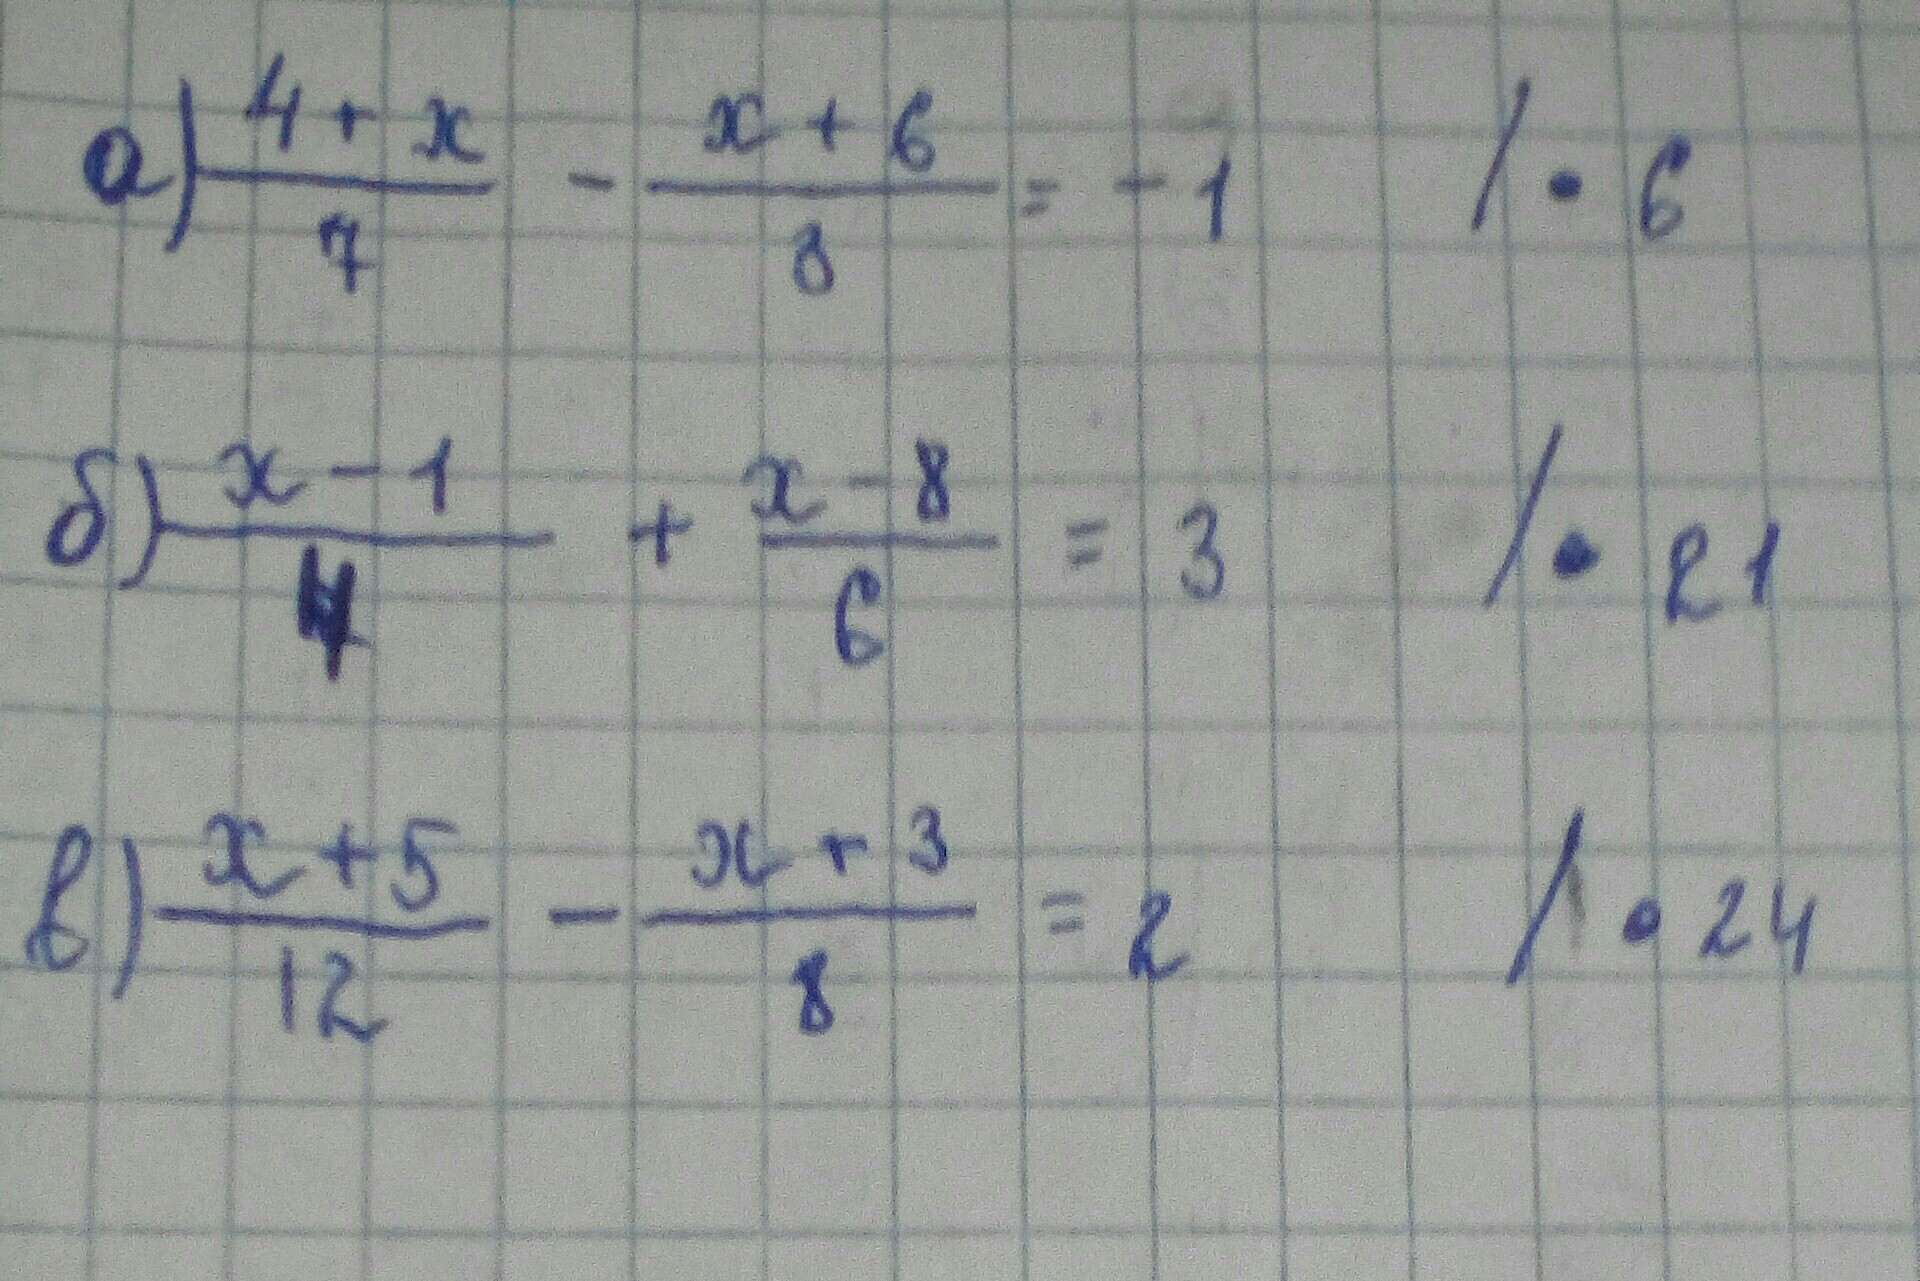 а) (4 + x)/7 - (x + 6)/8 = -1 / • 6
б) (x - 1)/4 + (x - 8)/6 = 3 / • 21
в) (x + 5)/12 - (x + 3)/8 = 2 / • 24